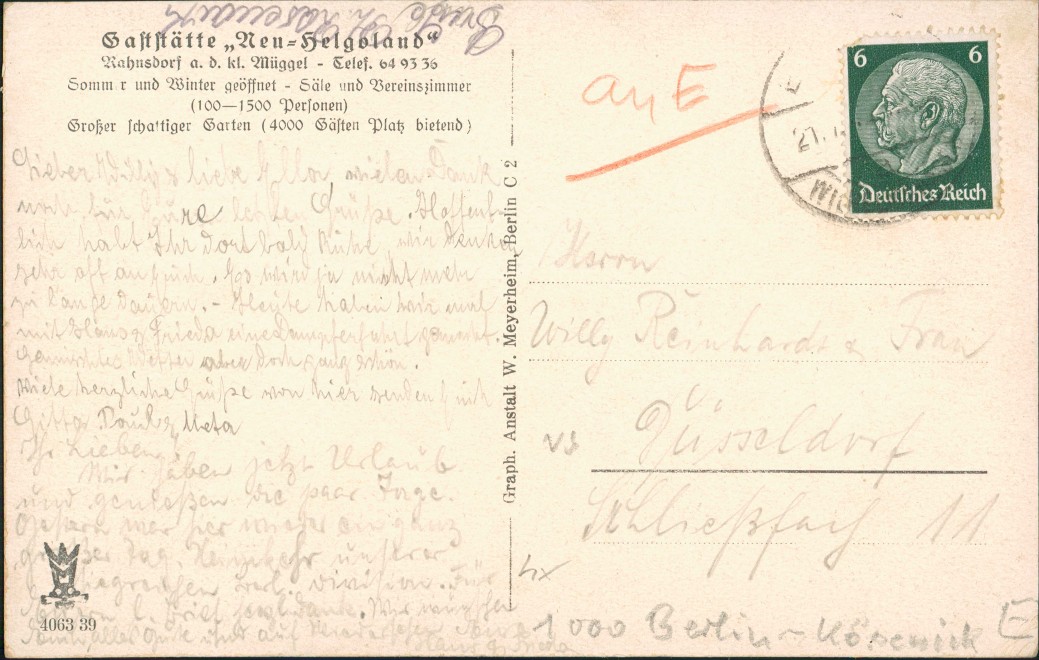 Gaststätte „Neu-Helgoland“
Rahnsdorf a. d. kl. Müggel - Telef. 64 93 36
Somm r und Winter geöffnet - Säle und Vereinszimmer
(100—1500 Personen)
Großer schattiger Garten (4000 Gästen Platz bietend)
Lieber Willy & liebe Ellor, vielen Dank
noch für Eure lieben Grüße. Hoffent-
lich habt Ihr dort bald Ruhe, wir denken
sehr oft an Euch. Es wird ja nicht mehr
zu lange dauern. - Heute haben wir mal
mit Hans & Frieda eine Dampferfahrt gemacht.
Gemischtes Wetter aber doch ganz schön.
Viele herzliche Grüße von hier senden Euch
Gitta Paul & Meta
Ihr Lieben,
Wir haben jetzt Urlaub
und genießen die paar Tage.
Gestern war hier wieder ein ganz
großer Tag, Heimkehr unserer
siegreichen Berl. Division. Für
l. Brief vorl. Dank. Wir wünschen
alles Gute und auf Wiedersehen
Hans & Frieda
4063 39
Graph. Anstalt W. Meyerheim, Berlin C 2
an E
21.
6 6
Deutsches Reich
Herrn
Willy Reinhardt & Frau
Düsseldorf
Schließfach 11
vs
1000 Berlin-Köpenick E